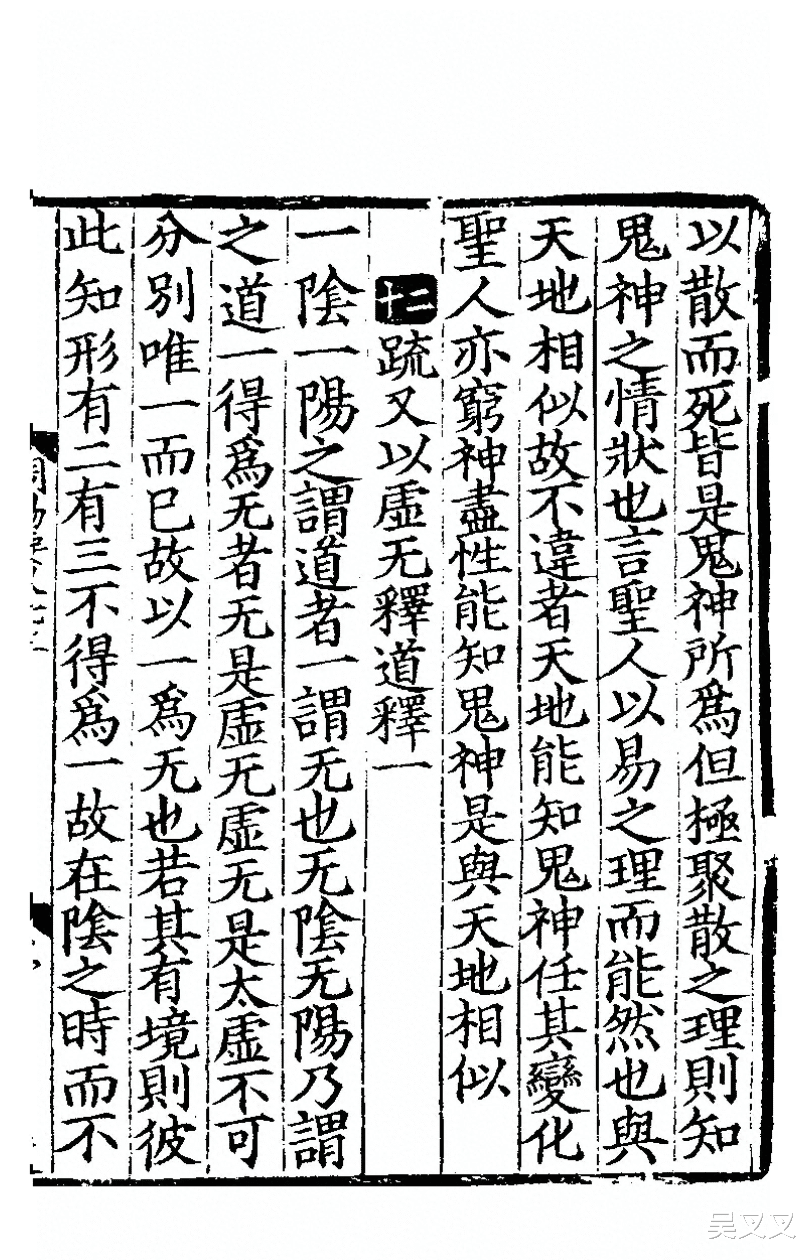 以散而死皆是鬼神所爲但極聚散之理則知
鬼神之情狀也言聖人以易之理而能然也與
天地相似故不違者天地能知鬼神任其變化
聖人亦窮神盡性能知鬼神是與天地相似
十二 䟽又以虛无釋道釋一
一陰一陽之謂道者一謂无也无陰无陽乃謂
之道一得爲无者无是虛无虛无是太虛不可
分別唯一而已故以一爲无也若其有境則彼
此知形有二有三不得爲一故在陰之時而不
吴叉叉